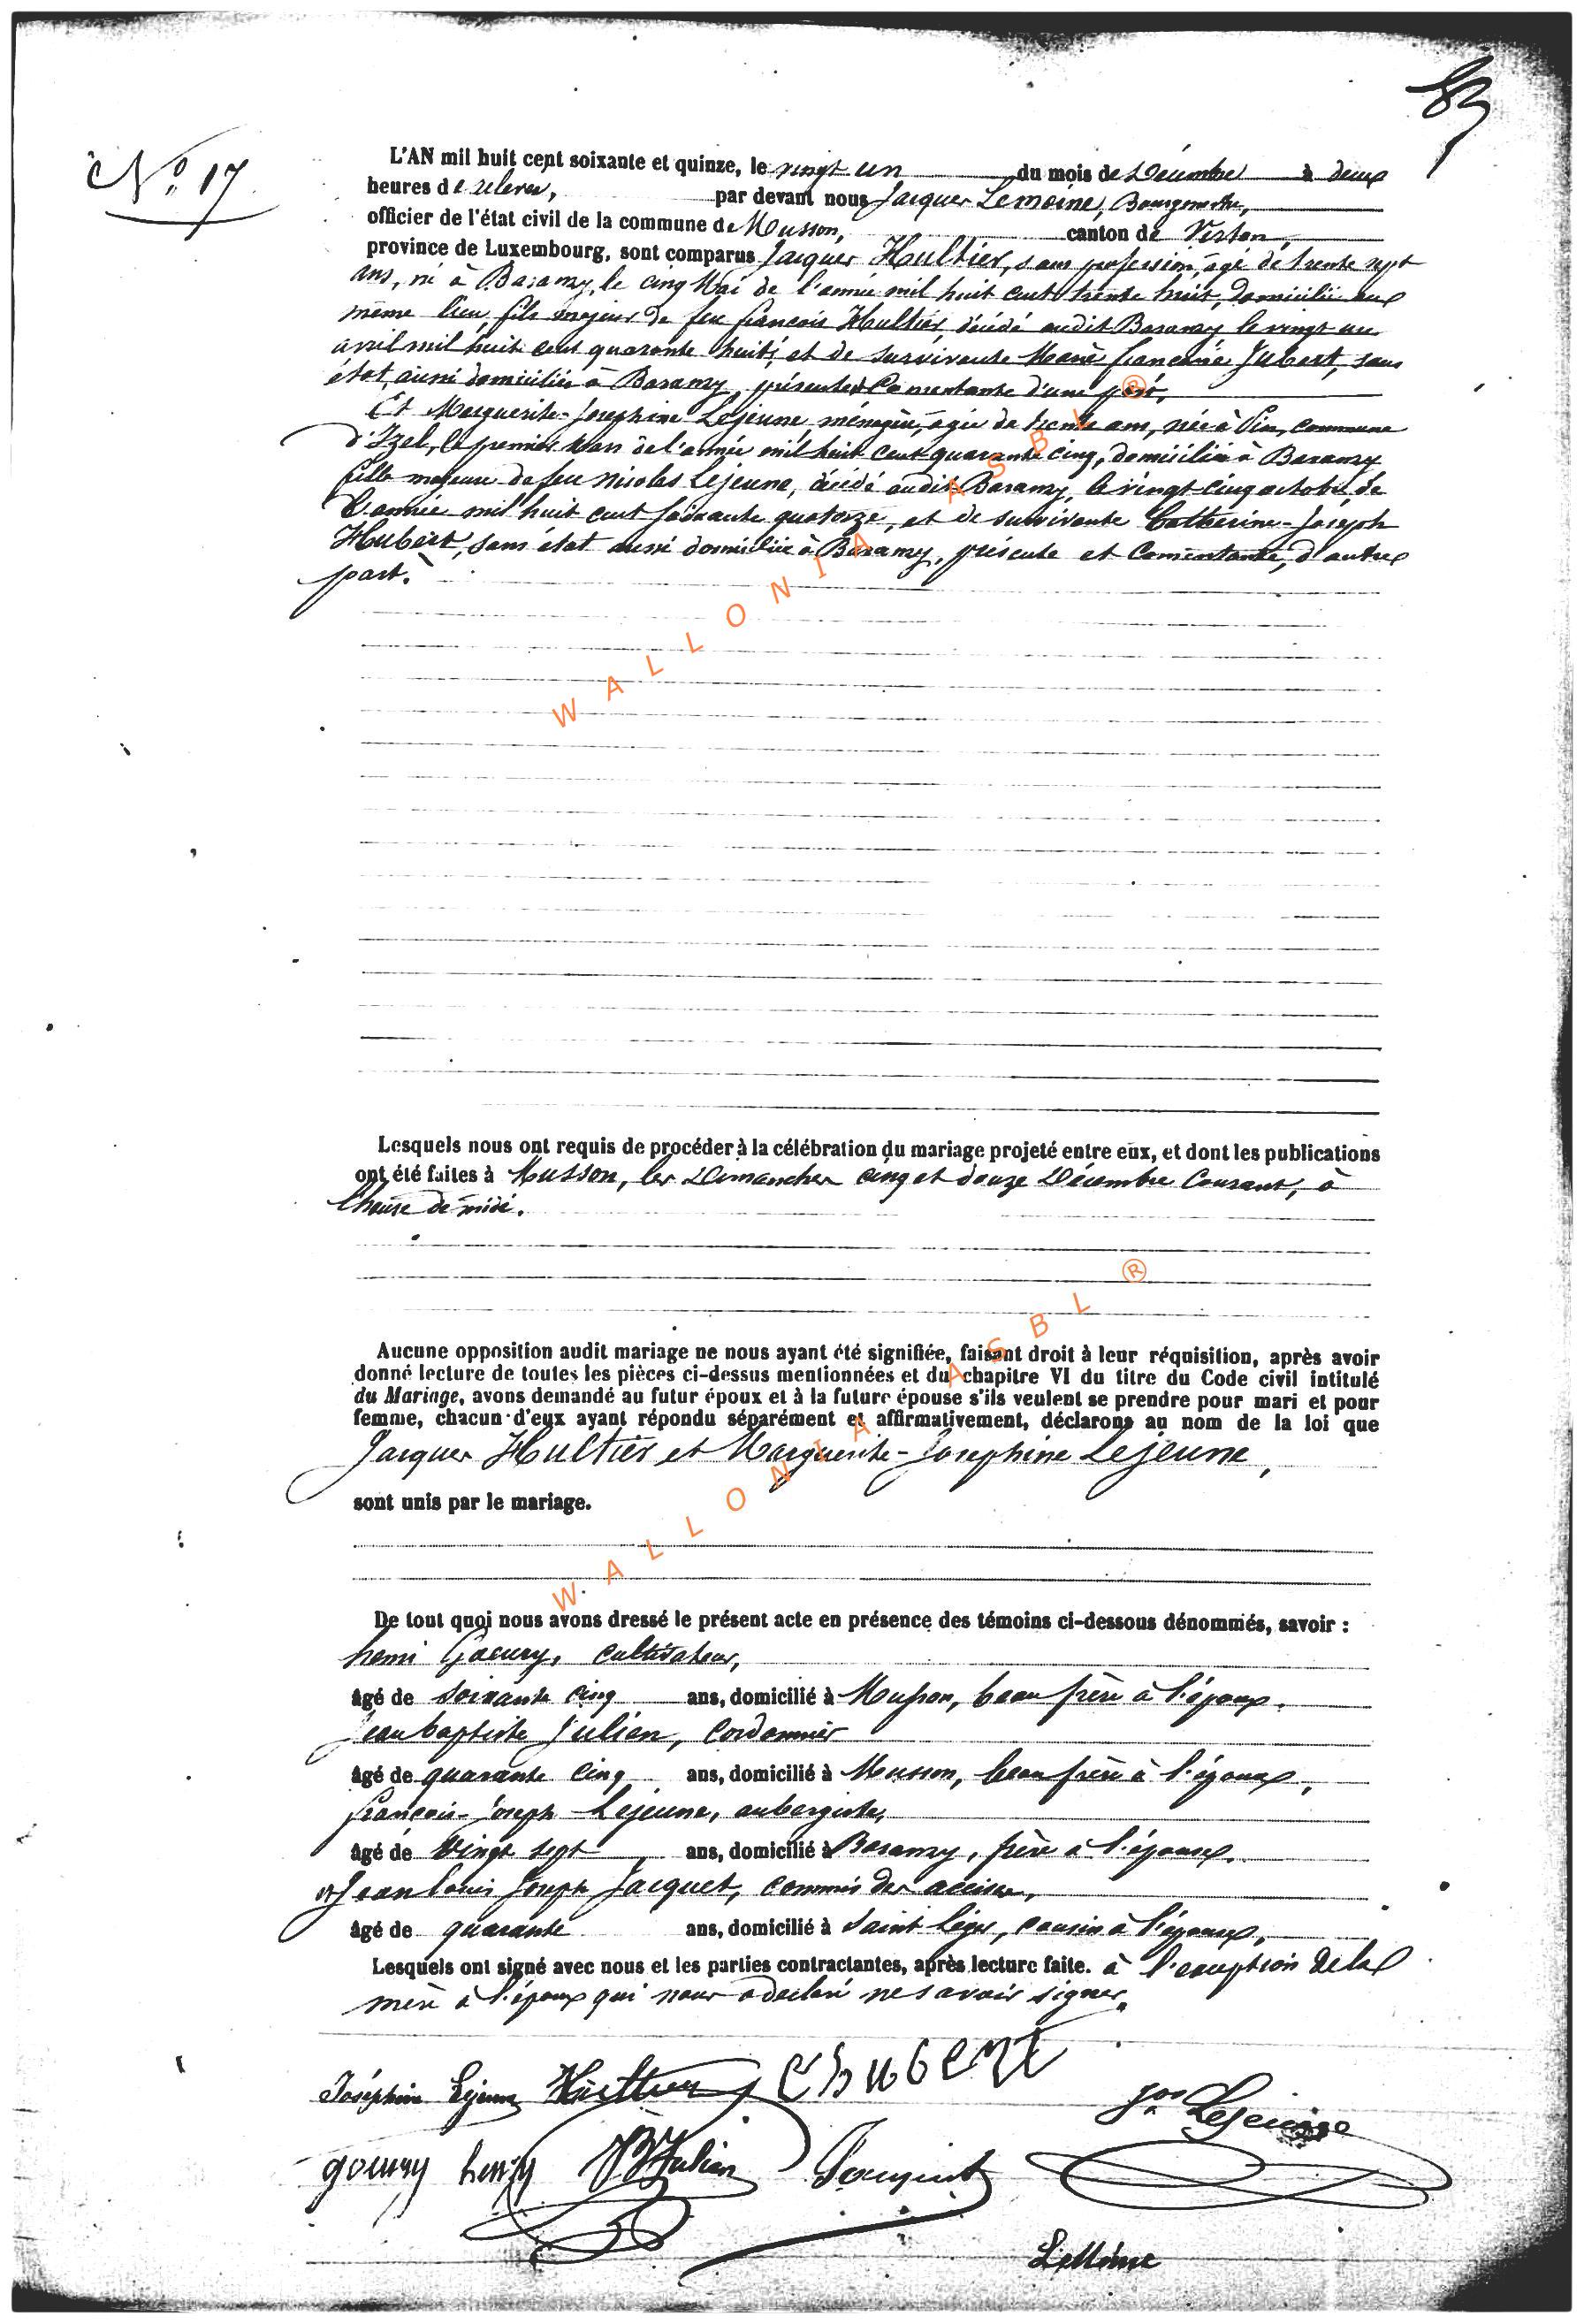 83
N° 17
L'AN mil huit cent soixante et quinze, le vingt un du mois de Décembre à deux
heures de relevée, par devant nous Jacques Lemoine, Bourgmestre,
officier de l'état civil de la commune de Musson, canton de Virton,
province de Luxembourg, sont comparus Jacques Hultier, sans profession, agé de trente sept
ans, né à Baranzy, le cinq Mai de l'année mil huit cent trente huit, domicilié au
même lieu, fils majeur de feu françois Hultier, décédé audit Baranzy le vingt un
avril mil huit cent quarante huit, et de survivante Marie françoise Jubert, sans
état, aussi domiciliée à Baranzy, présente & Consentante d'une part,
Et Marguerite-Josephine Lejeune, ménagère, agée de trente ans, née à Pin, commune
d'Izel, le premier Mars de l'année mil huit cent quarante cinq, domiciliée à Baranzy,
fille majeure de feu Nicolas Lejeune, décédé audit Baranzy, le vingt cinq octobre de
l'année mil huit cent soixante quatorze, et de survivante Catherine-Joseph
Hubert, sans état aussi domiciliée à Baranzy, présente et Consentante, d'autre
part.
WALLONIA ASBL ®
Lesquels nous ont requis de procéder à la célébration du mariage projeté entre eux, et dont les publications
ont été faites à Musson, les Dimanches cinq et douze Décembre Courant, à
l'heure de midi.
Aucune opposition audit mariage ne nous ayant été signifiée, faisant droit à leur réquisition, après avoir
donné lecture de toutes les pièces ci-dessus mentionnées et du chapitre VI du titre du Code civil intitulé
du Mariage, avons demandé au futur époux et à la future épouse s'ils veulent se prendre pour mari et pour
femme, chacun d'eux ayant répondu séparément et affirmativement, déclarons au nom de la loi que
Jacques Hultier et Marguerite-Josephine Lejeune,
sont unis par le mariage.
WALLONIA ASBL ®
De tout quoi nous avons dressé le présent acte en présence des témoins ci-dessous dénommés, savoir :
henri Goeury, Cultivateur,
âgé de soixante cinq ans, domicilié à Musson, beau frère à l'époux.
Jean baptiste Julien, Cordonnier
âgé de quarante cinq ans, domicilié à Musson, beau frère à l'époux,
françois-Joseph Lejeune, aubergiste,
âgé de Vingt sept ans, domicilié à Baranzy, frère à l'épouse.
et Jean Louis Joseph Jacquet, Commis des accises,
âgé de quarante ans, domicilié à Saint Léger, cousin à l'épouse,
Lesquels ont signé avec nous et les parties contractantes, après lecture faite. à l'exception de la
mère à l'époux qui nous a déclaré ne savoir signer.
Joséphine Lejeune Hultier C h u b e r t
Jos Lejeune
goeury henry JB Julien
Lemoine